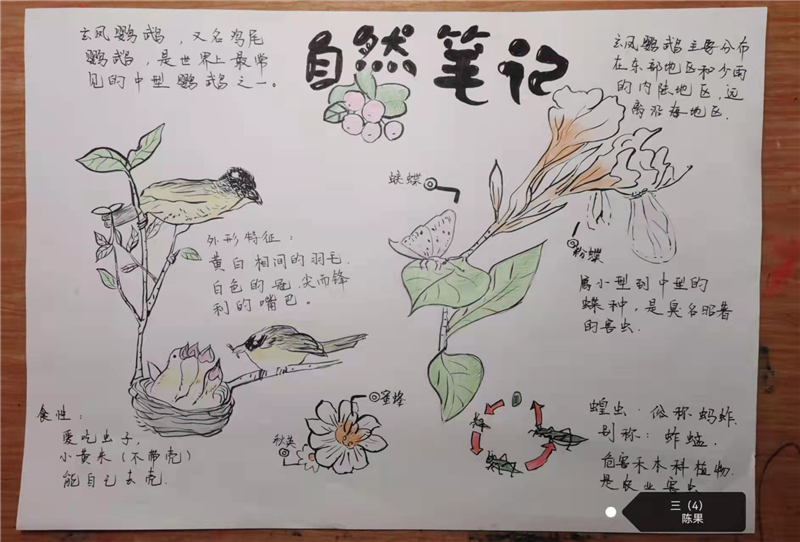 自然笔记
玄凤鹦鹉，又名鸡尾
鹦鹉，是世界上最常
见的中型鹦鹉之一。
玄凤鹦鹉主要分布
在东部地区和少雨
的内陆地区，远
离沿海地区.
蛱蝶
粉蝶
外形特征：
黄白相间的羽毛.
白色的冠.尖而锋
利的嘴巴。
属小型到中型的
蝶种，是臭名昭著
的害虫.
食性：
爱吃虫子，
小黄米（不带壳）
能自己去壳.
蜜蜂
秋英
蝗虫：俗称蚂蚱.
别称：蚱蜢.
危害禾本科植物.
是农业害虫
三（4）
陈果